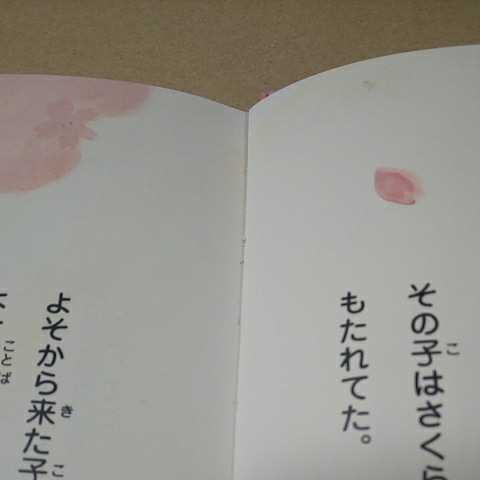 その子はさくら
もたれてた。
よそから来た子
ことば